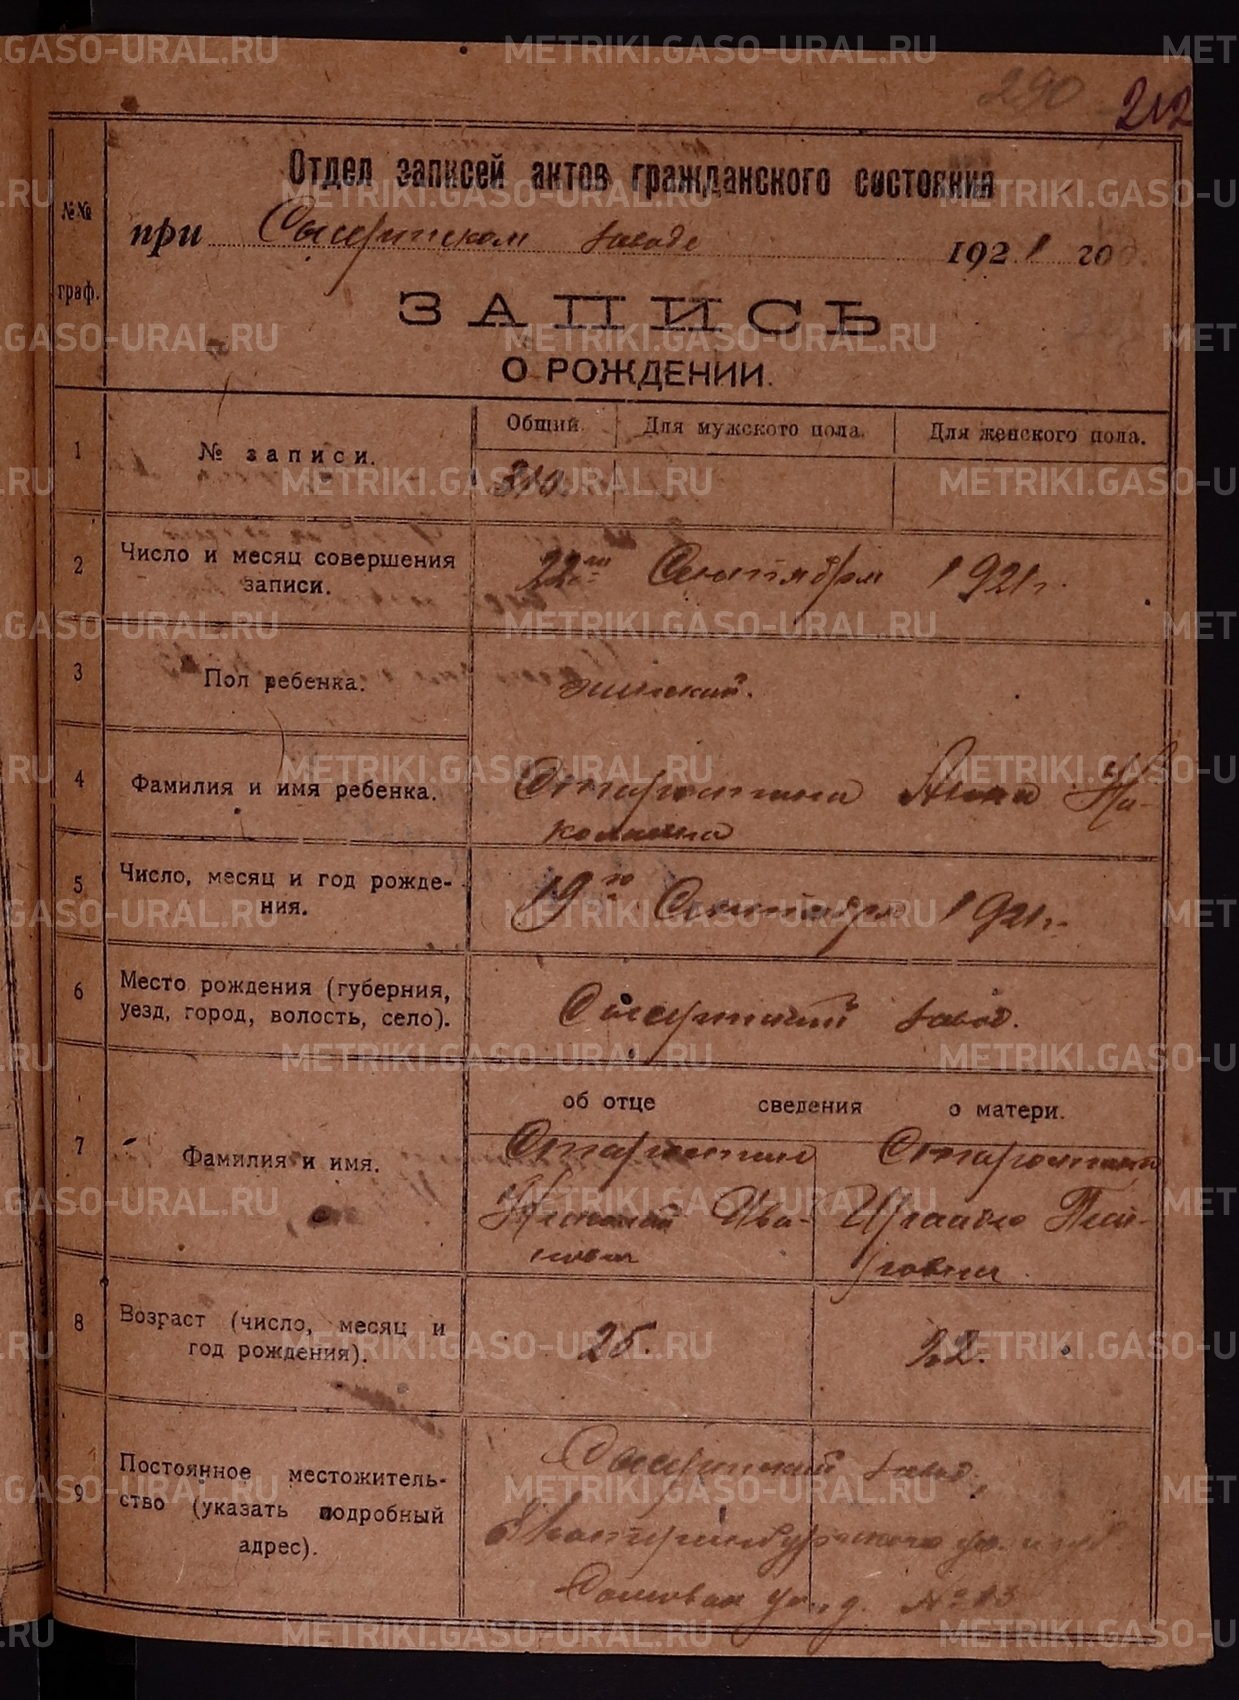 METRIKI.GASO-URAL.RU
290
212
Отдел записей актов гражданского состояния
при Сысертском заводе 1921 год.
№№ граф.
ЗАПИСЬ
О РОЖДЕНИИ.
1 № записи. Общий Для мужского пола. Для женского пола.
310.
2 Число и месяц совершения записи. 22го Сентября 1921 г.
3 Пол ребенка. женский.
4 Фамилия и имя ребенка. Старостина Анна Ни-
колаевна
5 Число, месяц и год рожде-
ния. 19го Сентября 1921 г.
6 Место рождения (губерния,
уезд, город, волость, село). Сысертский завод.
об отце сведения о матери.
7 Фамилия и имя.
Старостин
Николай Ива-
нович
Старостина
Пет-
ровна
8 Возраст (число, месяц и
год рождения). 25. 22.
9 Постоянное местожитель-
ство (указать подробный
адрес).
Сысертский завод,
Екатеринбургского у.
ул. д. № 13